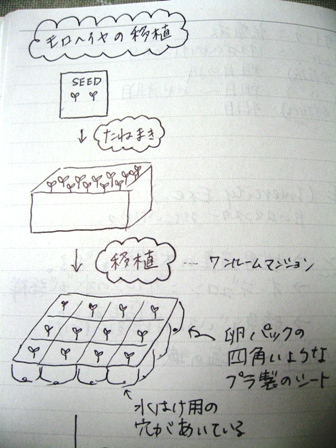 モロヘイヤの移植
SEED
たねまき
移植 … ワンルームマンション
卵パックの
四角いような
プラ製のシート
水はけ用の
穴があいている